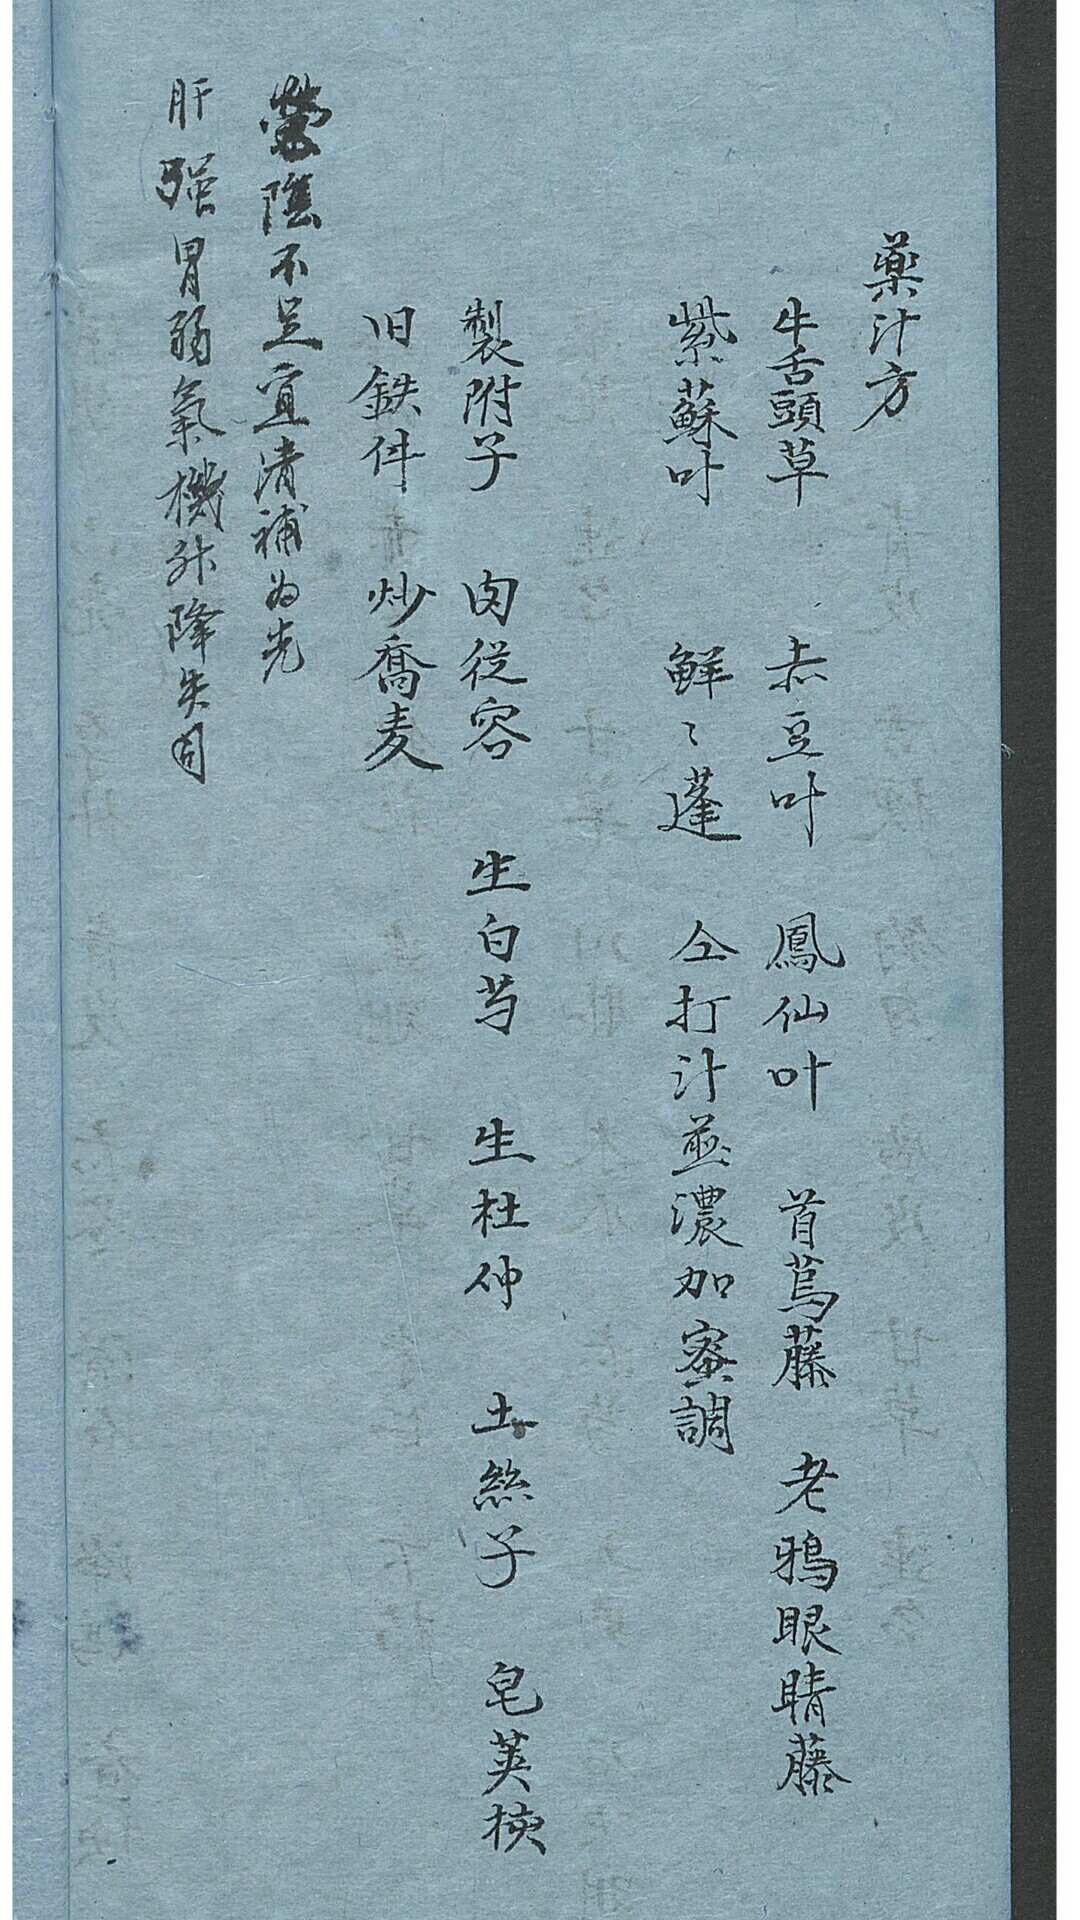 藥汁方
牛舌頭草 赤豆叶 鳳仙叶 首烏藤 老鴉眼睛藤
紫蘇叶 鮮〻蓬 仝打汁並濃加蜜調
製附子 肉從容 生白芍 生杜仲 土絲子 皂莢
旧鉄件 炒喬麦
營陰不足宜清補为先
肝强胃弱氣機升降失司